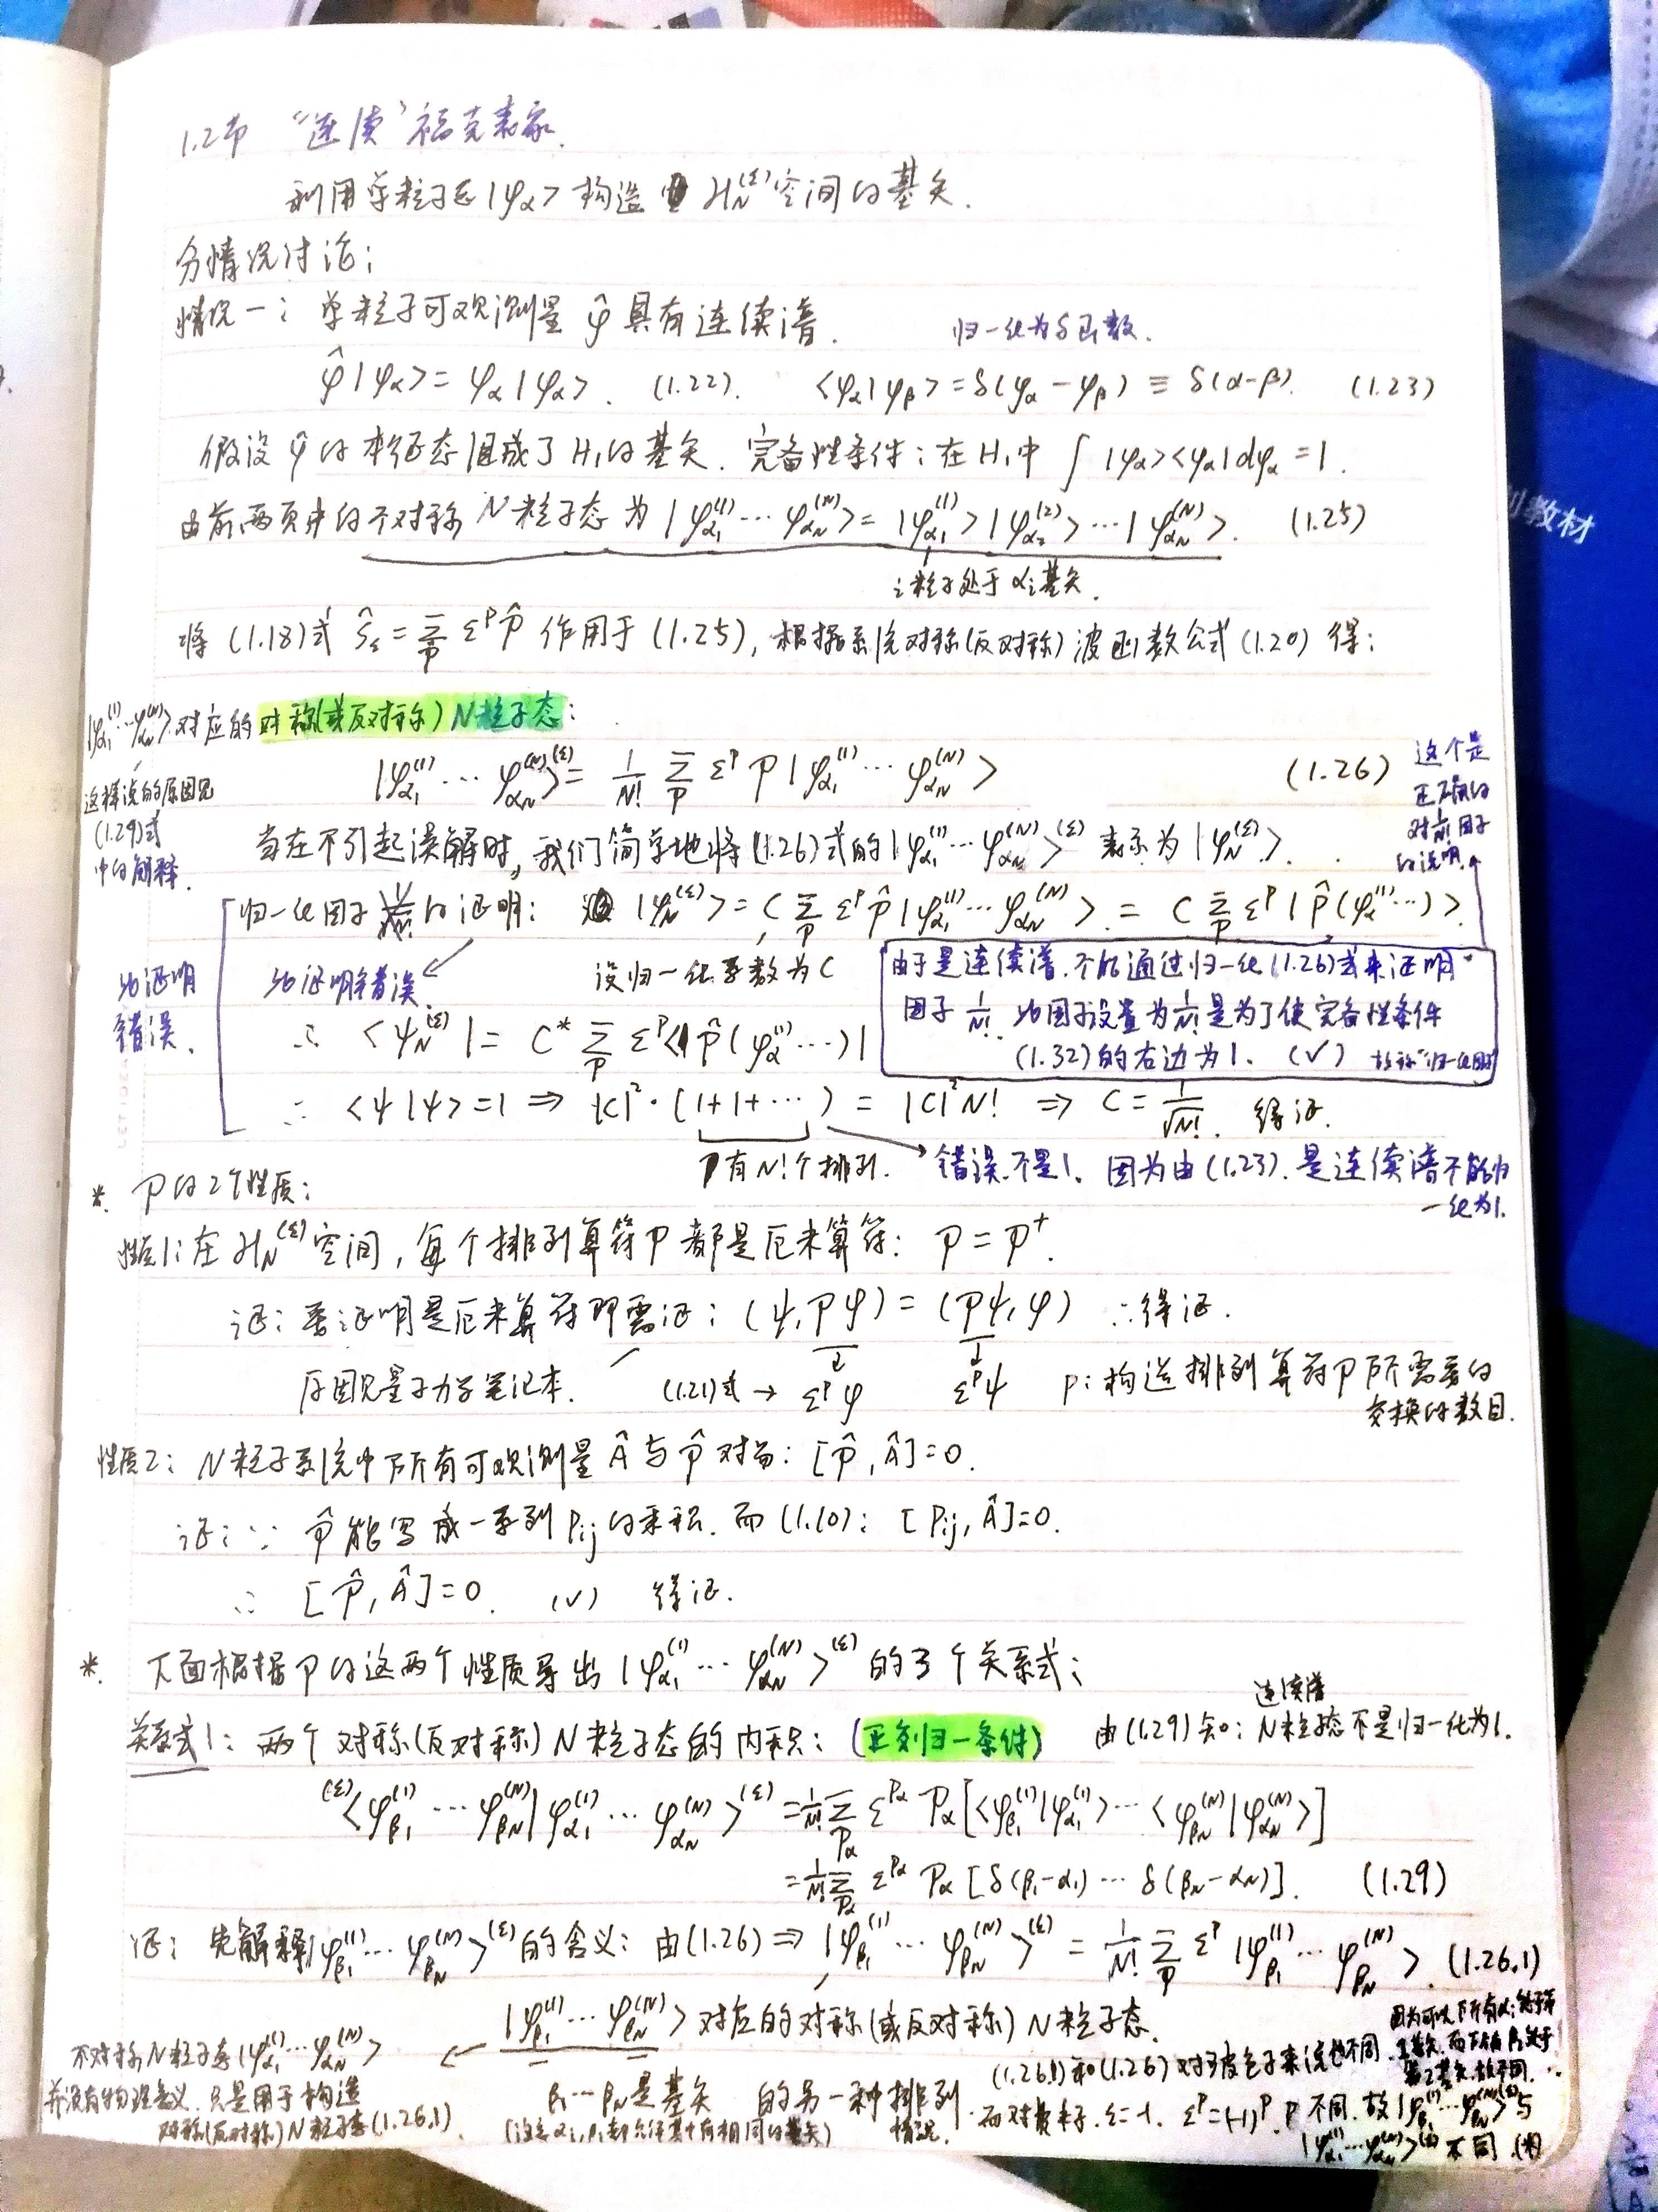 1.2节 “连续”福克表象.
利用单粒子态|φα> 构造 H_N^(ε)空间的基矢.
分情况讨论:
情况一: 单粒子可观测量 φ̂ 具有连续谱.
归一化为δ函数.
φ̂|φα> = φα|φα>. (1.22). <φα|φβ> = δ(φα-φβ) ≡ δ(α-β). (1.23)
假设φ̂的本征态组成了H₁的基矢. 完备性条件: 在H₁中 ∫|φα><φα|dφα = 1.
由前两页中的不对称N粒子态为 |φα₁^(1)…φαN^(N)> = |φα₁^(1)>|φα₂^(2)>…|φαN^(N)>. (1.25)
i粒子处于αi基矢.
将(1.18)式 Ŝε = Σ_P ε^P P̂ 作用于(1.25), 根据系统对称(反对称)波函数公式(1.20)得:
|φα₁^(1)…φαN^(N)>对应的对称(或反对称)N粒子态:
|φα₁^(1)…φαN^(N)>^(ε) = 1/N! Σ_P ε^P P|φα₁^(1)…φαN^(N)> (1.26)
这个是
正确的
对1/N!因子
的说明.
这样说的原因见
(1.29)式
中的解释.
当在不引起误解时, 我们简单地将(1.26)式的|φα₁^(1)…φαN^(N)>^(ε) 表示为|ψN^(ε)>.
归一化因子 的证明: |ψN^(ε)> = C Σ_P ε^P P̂|φα₁^(1)…φαN^(N)> = C Σ_P ε^P|P̂(φα^(1)…)>.
此证明
错误.
此证明错误
设归一化系数为C
由于是连续谱.不能通过归一化(1.26)式来证明
因子1/N!. 此因子设置为1/N!是为了使完备性条件
(1.32)的右边为1. (√) 故称“归一化因子”
∴ <ψN^(ε)| = C* Σ_P ε^P<P̂(φα^(1)…)|
∴ <ψ|ψ>=1 ⇒ |C|²·(1+1+…) = |C|²N! ⇒ C = 1/√N!. 得证.
P有N!个排列. 错误.不是1. 因为由(1.23).是连续谱不能归
一化为1.
*. P的2个性质:
性质1: 在H_N^(ε)空间, 每个排列算符P都是厄米算符: P = P⁺.
证: 要证明是厄米算符即需证: (ψ,Pφ) = (Pψ,φ) ∴得证.
原因见量子力学笔记本. (1.21)式→ ε^Pφ ε^Pψ P:构造排列算符P所需要的
交换的数目.
性质2: N粒子系统中所有可观测量Â与P̂对易: [P̂,Â]=0.
证: ∵ P̂能写成一系列Pij的乘积. 而(1.10): [Pij,Â]=0.
∴ [P̂,Â]=0. (√) 得证.
*. 下面根据P的这两个性质导出|φα₁^(1)…φαN^(N)>^(ε)的3个关系式:
关系式1: 两个对称(反对称)N粒子态的内积: (正交归一条件) 由(1.29)知: 连续谱N粒子态不是归一化为1.
^(ε)<φβ₁^(1)…φβN^(N)|φα₁^(1)…φαN^(N)>^(ε) = 1/N! Σ_Pα ε^Pα Pα[<φβ₁^(1)|φα₁^(1)>…<φβN^(N)|φαN^(N)>]
= 1/N! Σ_Pα ε^Pα Pα[δ(β₁-α₁)…δ(βN-αN)]. (1.29)
证: 先解释|φβ₁^(1)…φβN^(N)>^(ε)的含义: 由(1.26) ⇒ |φβ₁^(1)…φβN^(N)>^(ε) = 1/N! Σ_P ε^P|φβ₁^(1)…φβN^(N)>. (1.26.1)
|φβ₁^(1)…φβN^(N)>对应的对称(或反对称)N粒子态.
不对称N粒子态|φα₁^(1)…φαN^(N)>
并没有物理意义. 只是用于构造
对称(反对称)N粒子态(1.26.1).
β₁…βN是基矢 的另一种排列情况.
(注意αi,βi都允许其中有相同的基矢)
(1.26.1)和(1.26)对玻色子来说也不同.
而对费米子.ε=-1. ε^P=(-1)^P.P不同. 故|φβ₁^(1)…φβN^(N)>^(ε)与
|φα₁^(1)…φαN^(N)>^(ε)不同.
训教材